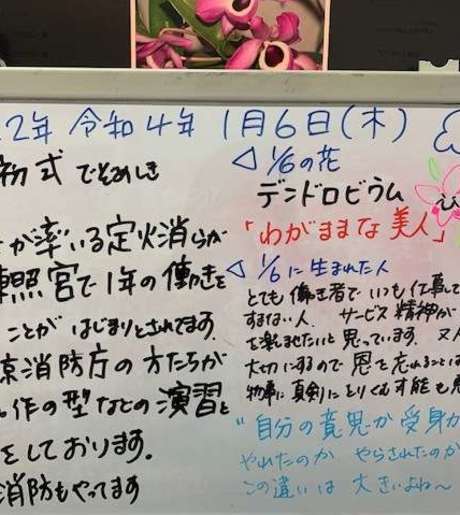 2年 令和4年 1月6日(木)
初式 でぞめしき
が率いる定火消らが
東照宮で1年の働きを
ことが はじまりとされてます
京消防庁の方たちが
作の型などの演習と
をしております。
消防もやってます
◁ 1/6の花
デンドロビウム
「わがままな美人」
◁ 1/6に生まれた人
とても働き者でいつも仕事して
すまない人. サービス精神が
を楽しませたいと思っています. 又人
大切にするので恩を忘れることは
物事に真剣にとりくむ才能も
"自分の意思か 受身か
やれたのか やらされたのか
この違いは 大きいよね～